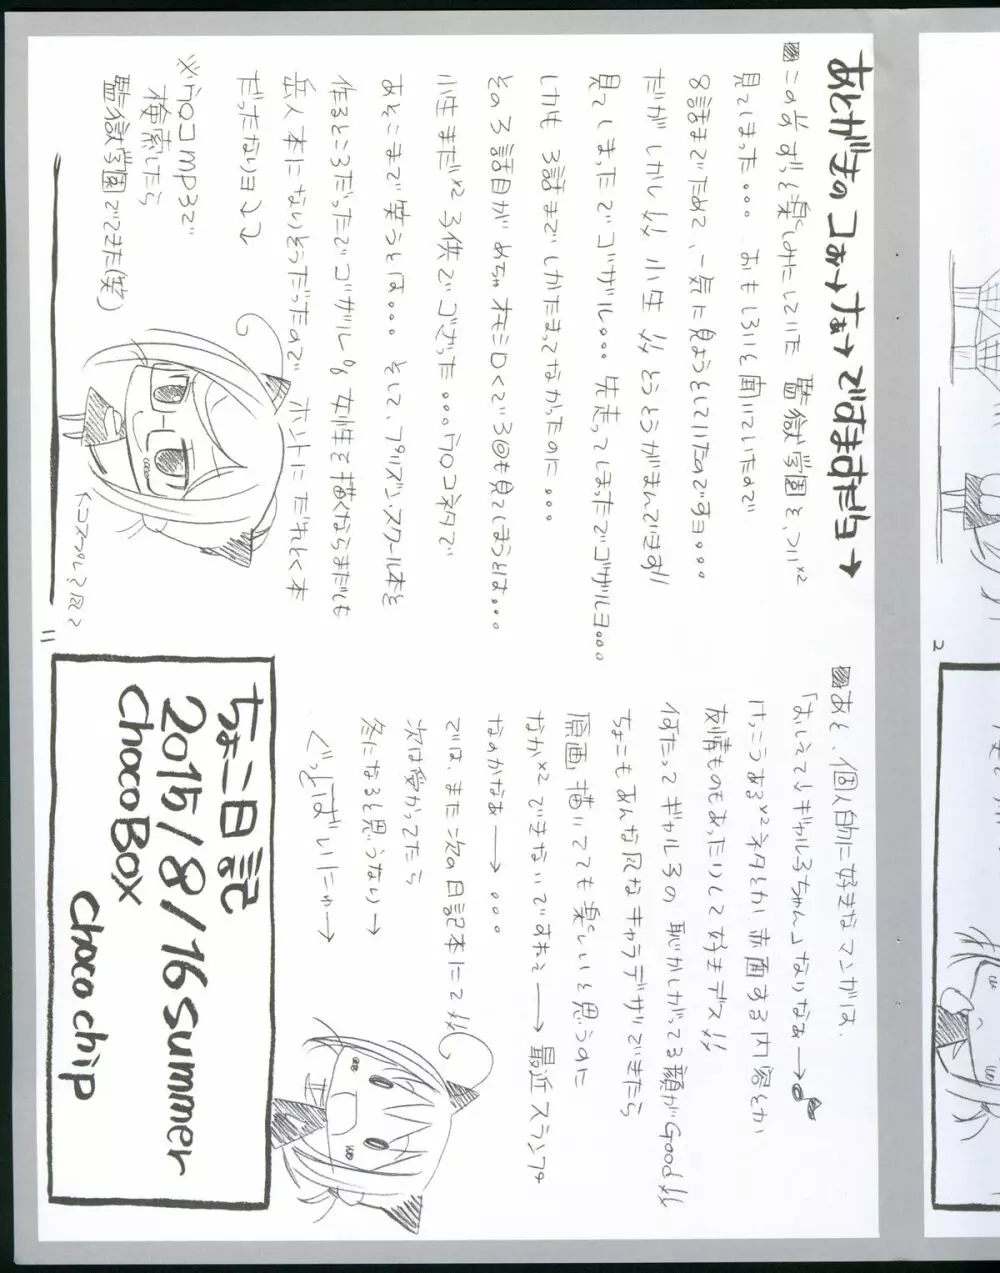 あとがきのコぉ→ナぁ→ですますだヨ→
■この尚ずっと楽しみにしていた 監獄学園を、ついx2
見てしまった。。。 おもしろいと聞いていたので
8話までためて、一気に見ようとしていたのですョ。。。
だが しかし〃 小生 〃 とうとうがまんできず!!
見てしまったでゴザル。。。 先走ってしまったでゴザルヨ。。。
しかも 3話までしかたまってなかったのに。。。
その3話目がめちゃオモシロくて3回も見てしまうとは。。。
小生まだx2 子供でござった。。。ウ○コネタで
あそこまで笑うとは。。。 そして、プリズン、スクール本を
作るところだったでゴザル 女性を描くならまだしも
岳人本になりそうだったので ホントに だれとく本
だったなりヨ↓↓
※ウロコmp3で
検索したら
監獄学園でてきた(笑)
11
■あと、個人的に好きなマンガは、
「おしえて♪ギャル子ちゃん」なりなぁ→♪
けっこうあるx2ネタとか 赤面する内容とか
友情ものもあったりして好きデス〃
何たって ギャル子の 恥かしがってる顔がGood〃
ちょこもあんな風なキャラデザできたら
原画 描いてても楽しいと思うのに
なかx2 できないですねぇ→ 最近スランプ
なのかなぁ→。。。
では、また次の日記本にて〃
次は受かってたら
冬になると思うなり→
ぐっどばいにゃ→
ちょこ日記
2015/8/16summer
chocoBox
choco chip
2